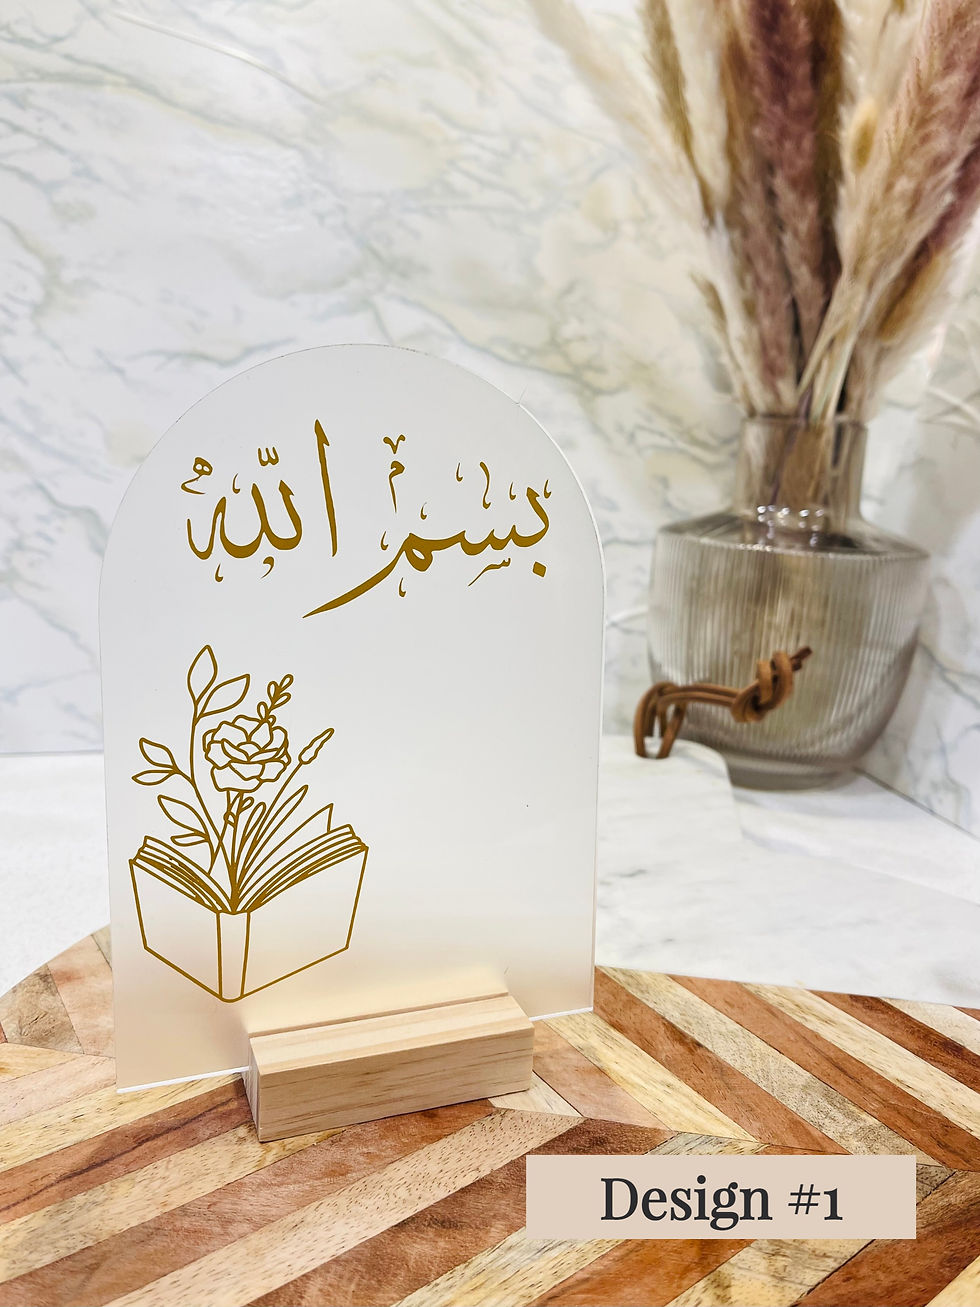 بسم الله
Design #1